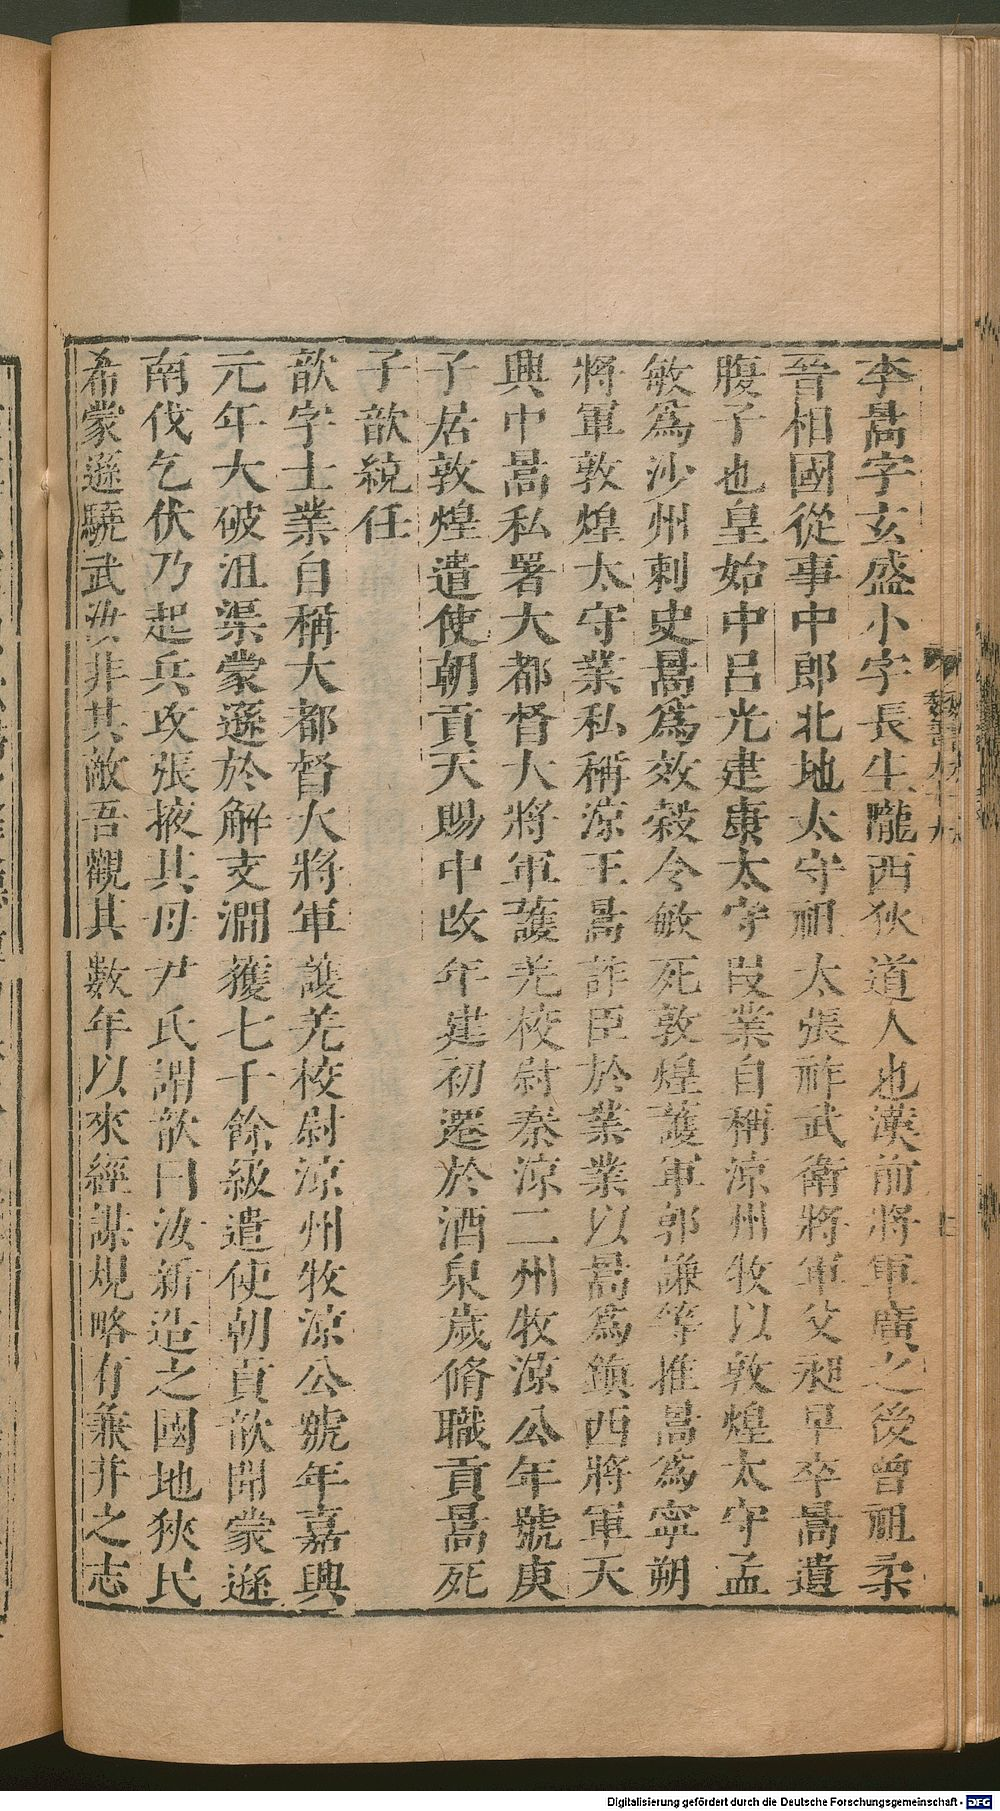 李暠字玄盛小字長生隴西狄道人也漢前將軍廣之後曾祖柔
晉相國從事中郎北地太守祖太張祚武衛將軍父昶早卒暠遺
腹子也皇始中呂光建康太守段業自稱涼州牧以敦煌太守孟
敏爲沙州刺史暠爲效穀令敏死敦煌護軍郭謙等推暠爲寧朔
將軍敦煌太守業私稱涼王暠詐臣於業業以暠爲鎮西將軍天
興中暠私署大都督大將軍護羌校尉秦涼二州牧涼公年號庚
子居敦煌遣使朝貢天賜中改年建初遷於酒泉歲脩職貢暠死
子歆統任
歆字士業自稱大都督大將軍護羌校尉涼州牧涼公號年嘉興
元年大破沮渠蒙遜於解支澗獲七千餘級遣使朝貢歆聞蒙遜
南伐乞伏乃起兵攻張掖其母尹氏謂歆曰汝新造之國地狹民
希蒙遜驍武汝非其敵吾觀其數年以來經謀規略有兼并之志
Digitalisierung gefördert durch die Deutsche Forschungsgemeinschaft - DFG